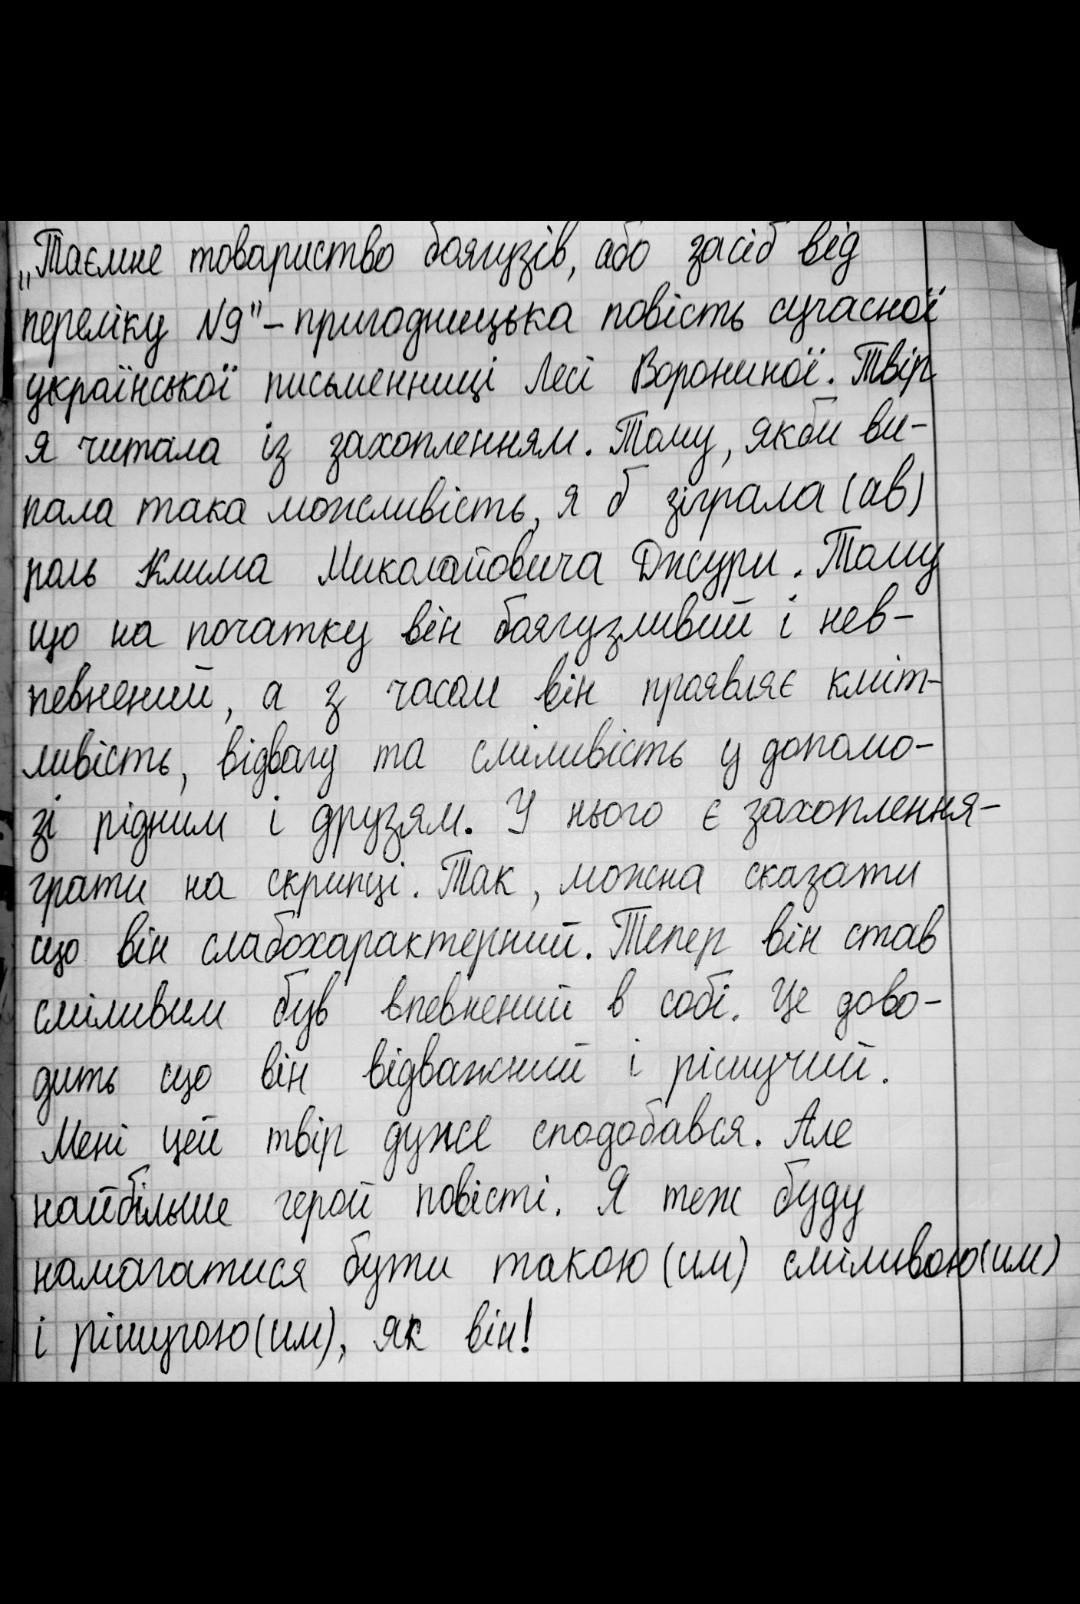 „Таємне товариство боягузів, або засіб від
переліку №9"-пригодницька повість сучасної
української письменниці Лесі Ворониної. Твір
я читала із захопленням. Тому, якби ви-
пала така можливість, я б зіграла (ав)
роль Клима Миколайовича Джури. Тому
що на початку він боягузливий і нев-
певнений, а з часом він проявляє кміт-
ливість, відвагу та сміливість у допомо-
зі рідним і друзям. У нього є захоплення-
грати на скрипці. Так, можна сказати
що він слабохарактерний. Тепер він став
сміливим був впевнений в собі. Це дово-
дить що він відважний і рішучий.
Мені цей твір дуже сподобався. Але
найбільше герой повісті. Я теж буду
намагатися бути такою (им) сміливою(им)
і рішучою(им), як він!